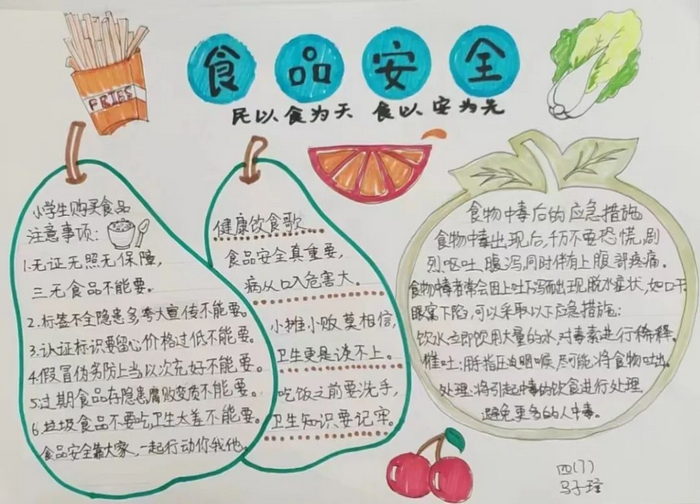 FRIES
食品安全
民以食为天 食以安为先
小学生购买食品
注意事项:
1.无证无照无保障,
三无食品不能要。
2.标签不全隐患多,夸大宣传不能要。
3.认证标识要留心价格过低不能要。
4.假冒伪劣防上当以次充好不能要。
5.过期食品存隐患腐败变质不能要。
6.垃圾食品不要吃,卫生太差不能要。
食品安全靠大家,一起行动你我他。
健康饮食歌
食品安全真重要,
病从口入危害大。
小摊小贩莫相信,
卫生更是谈不上。
吃饭之前要洗手,
卫生知识要记牢。
食物中毒后的应急措施
食物中毒出现后,千万不要恐慌,剧
烈呕吐、腹泻,同时伴有上腹部疼痛。
食物中毒者常会因上吐下泻而出现脱水症状,如口干
眼窝下陷,可以采取以下应急措施:
饮水:立即饮用大量的水,对毒素进行稀释。
催吐:用手指压迫咽喉,尽可能将食物吐出。
处理:将引起中毒的饮食进行处理,
避免更多的人中毒。
四(7)
马子瑾